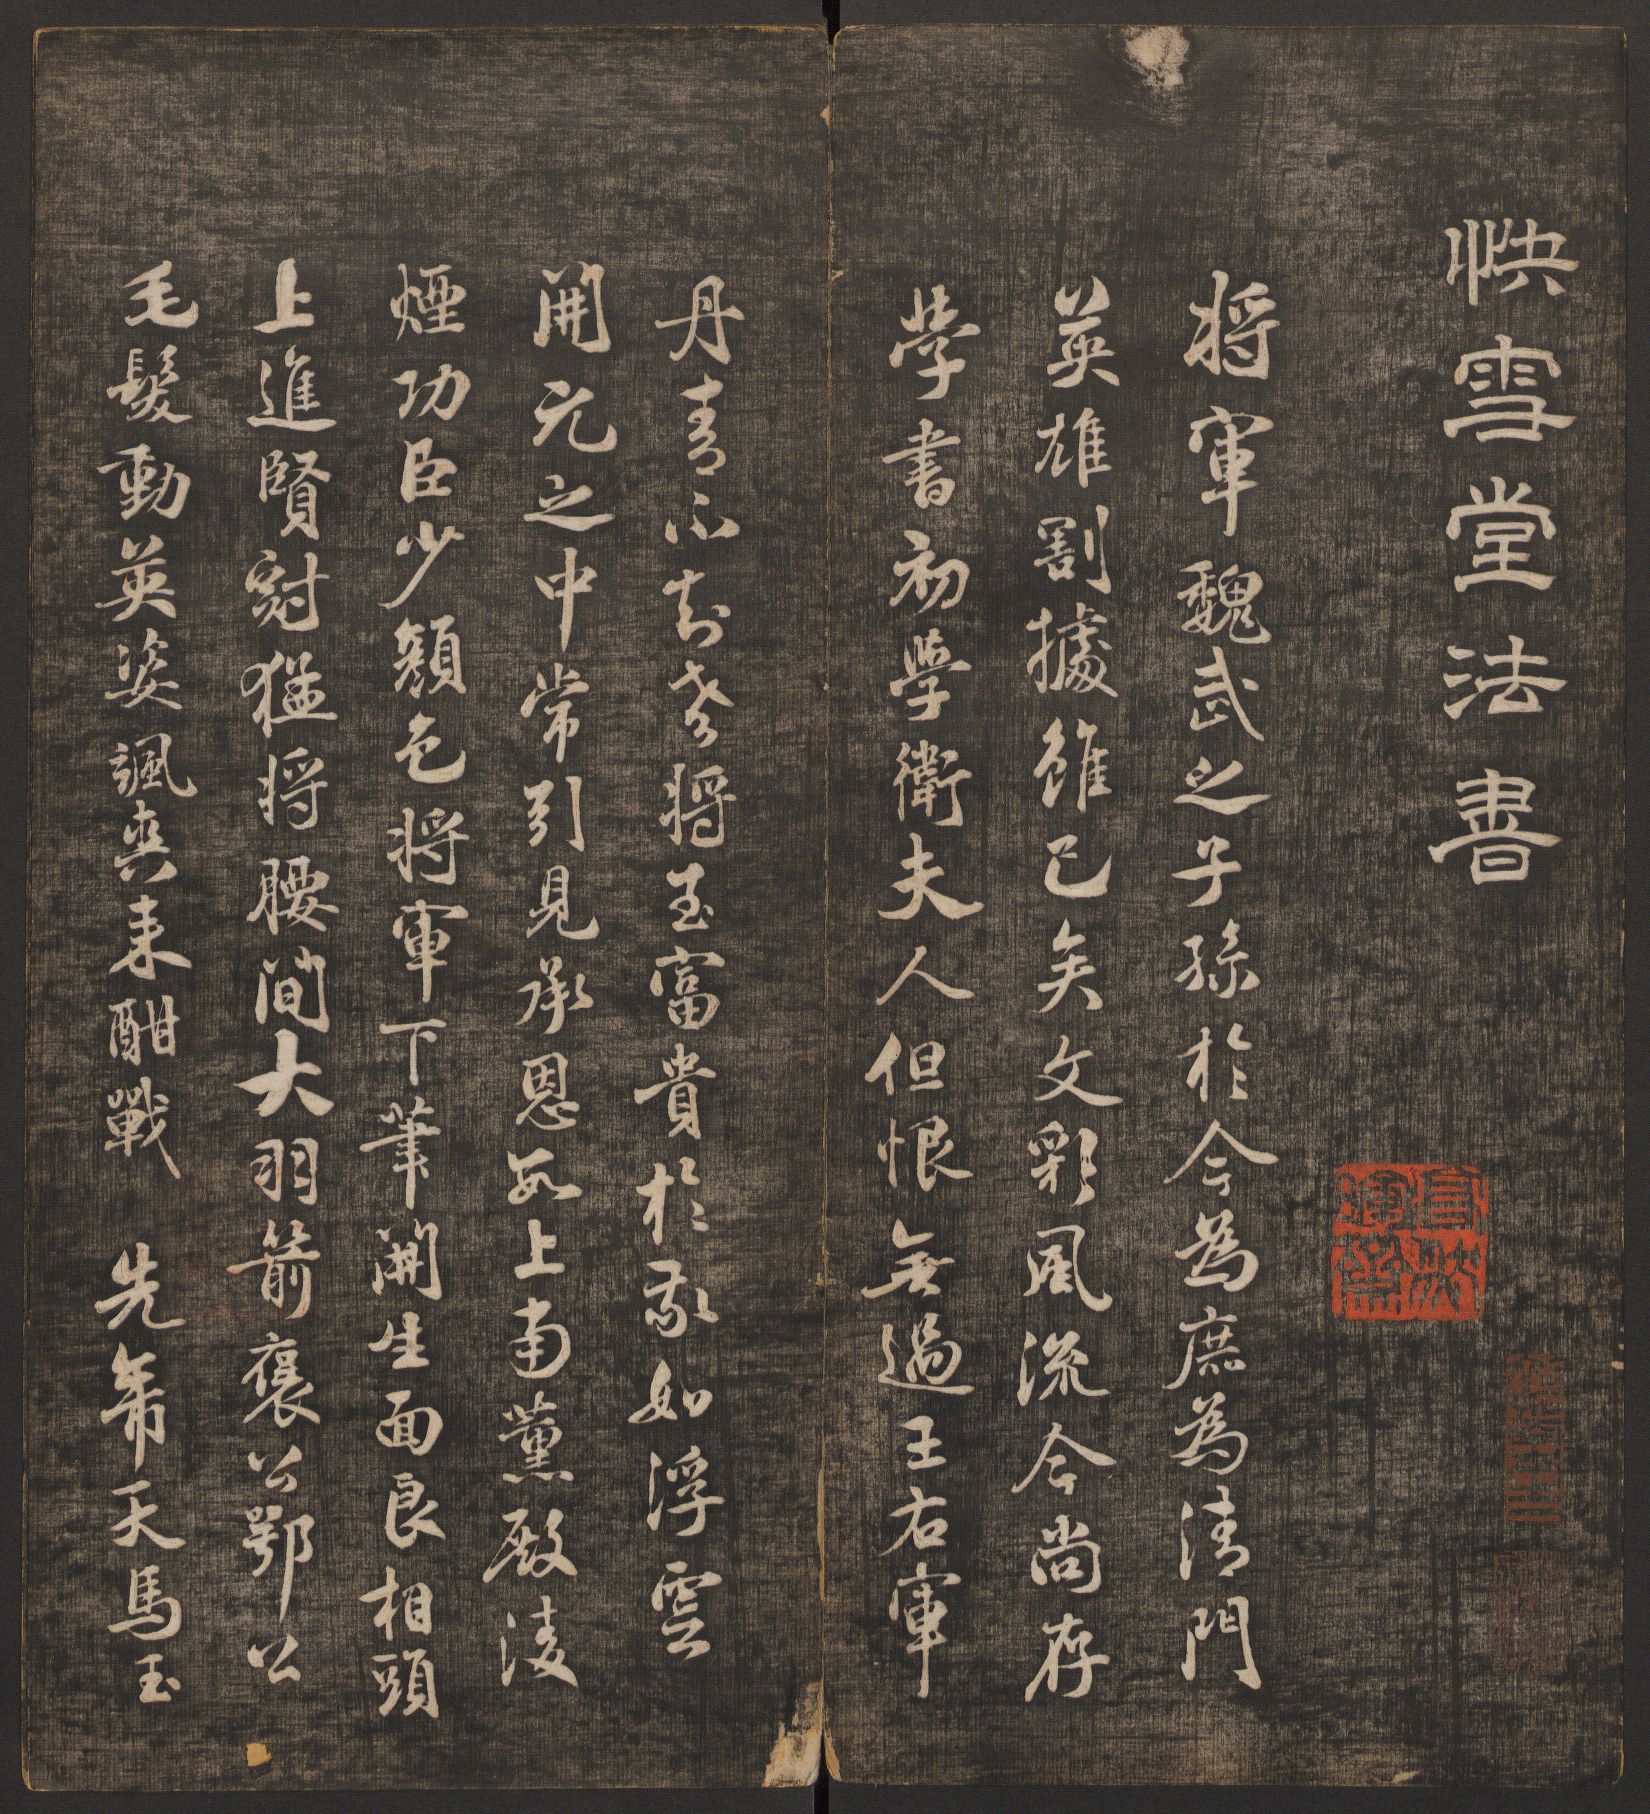 快雪堂法書
将軍魏武之子孫於今為庶為清門
英雄割據雖已矣文彩風流今尚存
學書初學衛夫人但恨無過王右軍
丹青不知老将至富貴於我如浮雲
開元之中常引見承恩數上南薰殿淩
煙功臣少顏色将軍下筆開生面良相頭
上進賢冠猛将腰間大羽箭褒公鄂公
毛髮動英姿颯爽来酣戰 先帝天馬玉